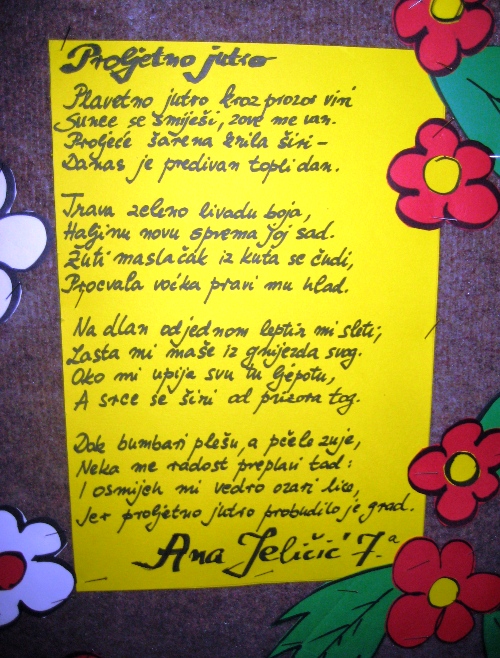 Proljetno jutro
Plavetno jutro kroz prozor viri
Sunce se smiješi, zove me van.
Proljeće šarena krila širi –
Danas je predivan topli dan.
Trava zeleno livadu boja,
Haljinu novu sprema joj sad.
Žuti maslačak iz kuta se čudi,
Procvala voćka pravi mu hlad.
Na dlan odjednom leptir mi sleti;
Lasta mi maše iz gnijezda svog.
Oko mi upija svu tu ljepotu,
A srce se širi od prizora tog.
Dok bumbari plešu, a pčele zuje,
Neka me radost preplavi tad:
I osmijeh mi vedro ozari lice,
Jer proljetno jutro probudilo je grad.
Ana Jeličić 7.a